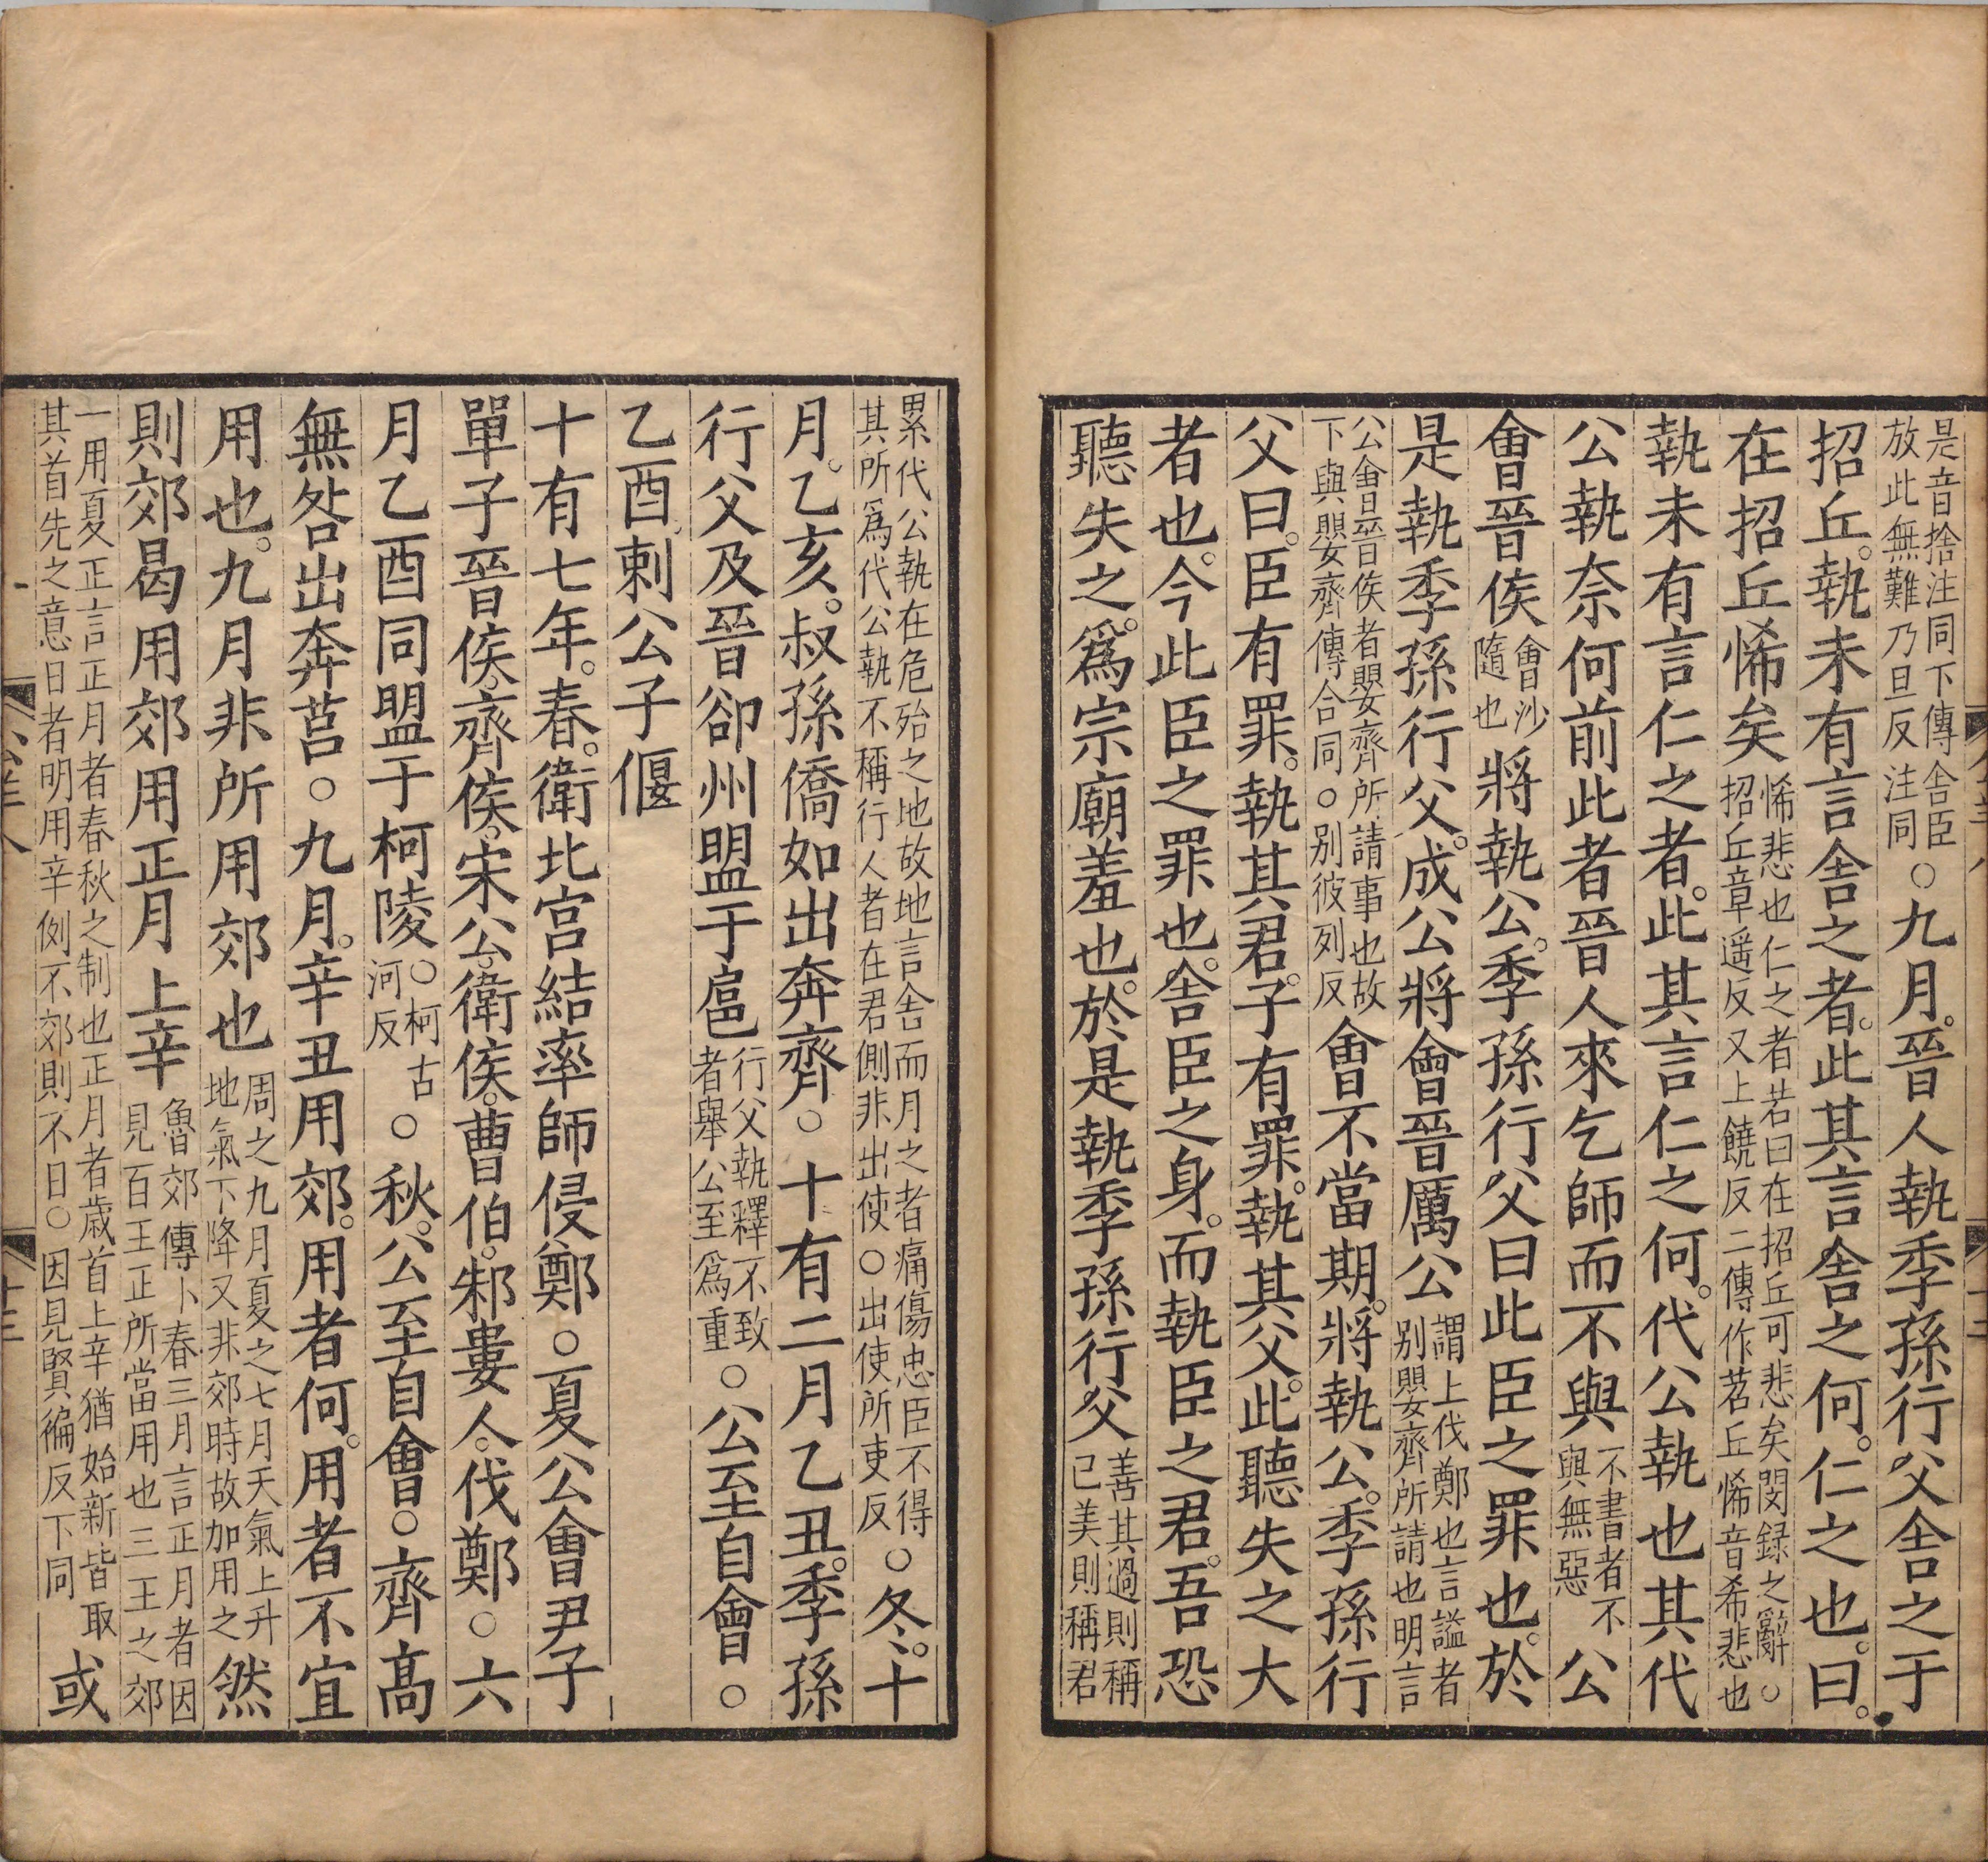 是音捨注同下傳舍臣
放此無難乃旦反注同○九月。晉人執季孫行父舍之于
招丘。執未有言舍之者。此其言舍之何。仁之也。曰。
在招丘悕矣悕悲也仁之者若曰在招丘可悲矣閔録之辭○
招丘章遥反又上饒反二傳作苕丘悕音希悲也
執未有言仁之者。此其言仁之何。代公執也其代
公執奈何前此者晉人來乞師而不與不書者不
與無惡公
會晉侯會沙
隨也將執公。季孫行父曰此臣之罪也。於
是執季孫行父。成公將會晉厲公謂上伐鄭也言謚者
別嬰齊所請也明言
公會晉侯者嬰齊所請事也故
下與嬰齊傳合同○别彼列反會不當期。將執公。季孫行
父曰。臣有罪。執其君。子有罪。執其父。此聽失之大
者也。今此臣之罪也。舍臣之身。而執臣之君。吾恐
聽失之。爲宗廟羞也。於是執季孫行父善其過則稱
己美則稱君
累代公執在危殆之地故地言舍而月之者痛傷忠臣不得
其所爲代公執不稱行人者在君側非出使○出使所吏反○冬。十
月。乙亥。叔孫僑如出奔齊○十有二月乙丑。季孫
行父及晉郤州盟于扈行父執釋不致
者舉公至爲重○公至自會○
乙酉刺公子偃
十有七年。春。衛北宮結率師侵鄭○夏公會尹子
單子晉侯。齊侯。宋公。衛侯。曹伯。邾婁人。伐鄭○六
月乙酉同盟于柯陵○柯古
河反○秋。公至自會○齊高
無咎出奔莒○九月。辛丑用郊。用者何。用者不宜
用也。九月非所用郊也周之九月夏之七月天氣上升
地氣下降又非郊時故加用之然
則郊曷用郊用正月上辛魯郊傳卜春三月言正月者因
見百王正所當用也三王之郊
一用夏正言正月者春秋之制也正月者歳首上辛猶始新皆取
其首先之意日者明用辛例不郊則不日○因見賢徧反下同或